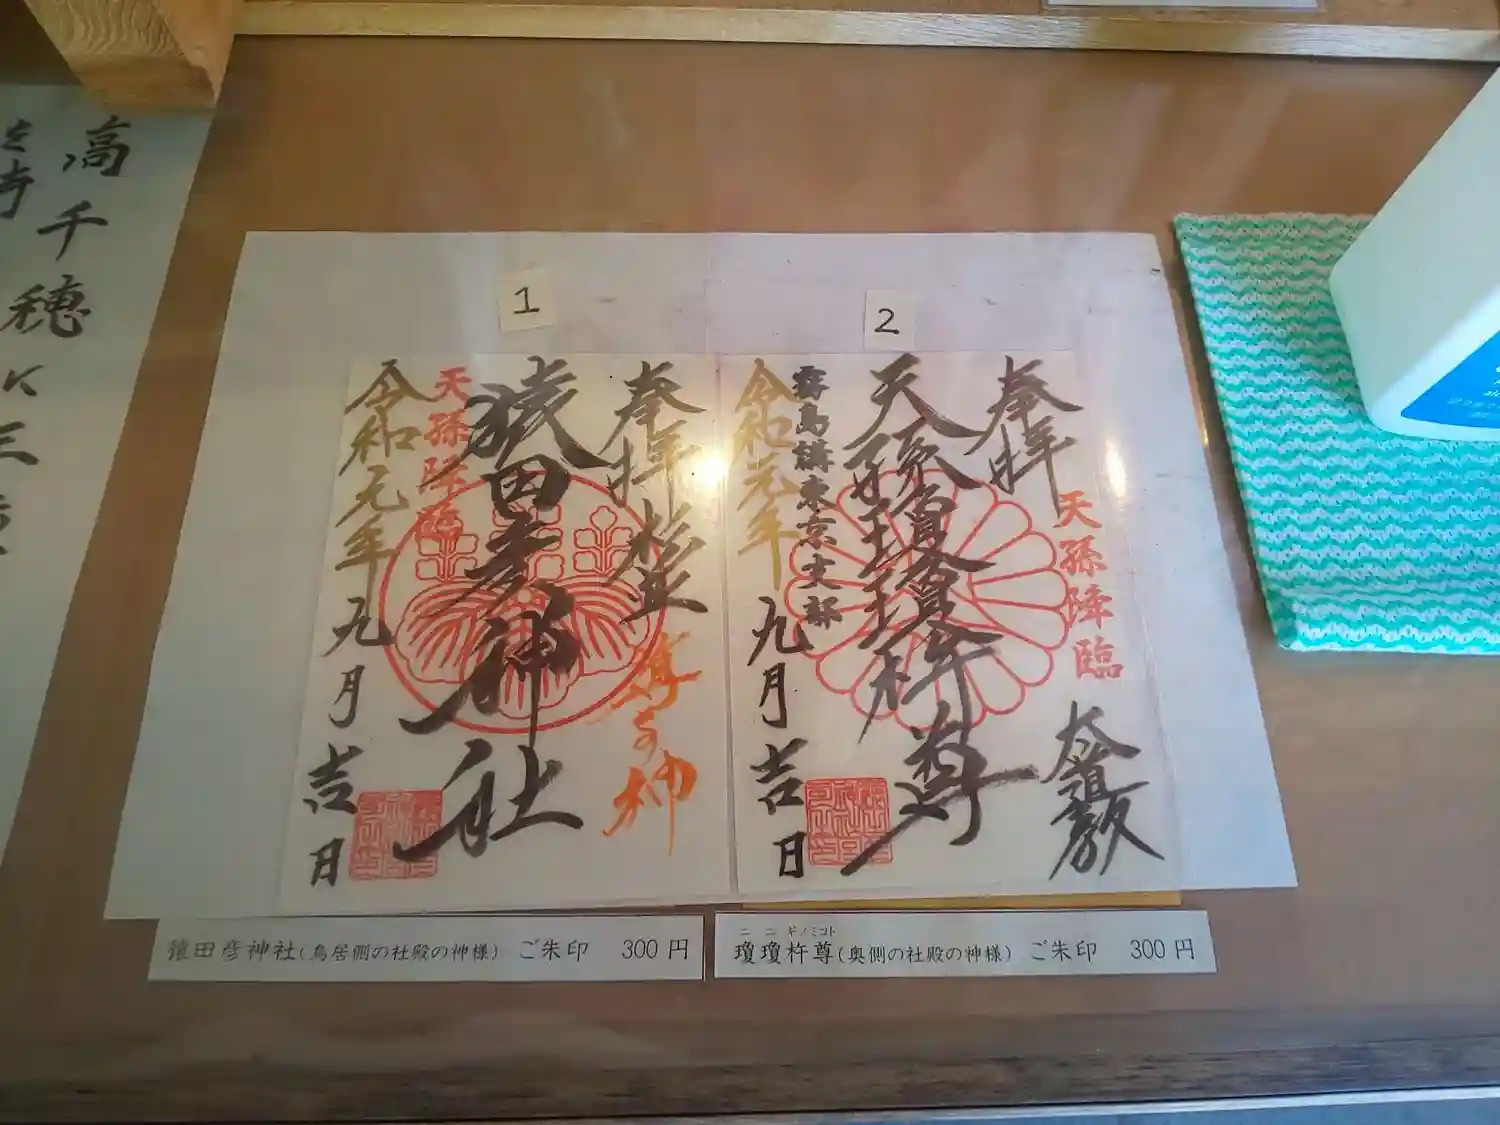 高千穂
1
奉拝
猿田彦神社
天孫降臨
令和元年九月吉日
2
奉拝
天孫降臨
天孫瓊瓊杵尊
霧島講東京支部
令和元年九月吉日
猿田彦神社(鳥居側の社殿の神様) ご朱印 300円
ニニギノミコト
瓊瓊杵尊(奥側の社殿の神様) ご朱印 300円